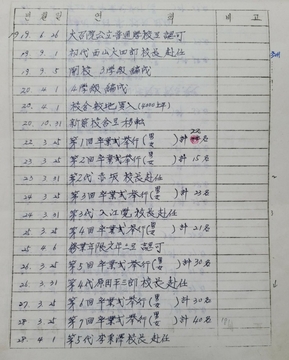 년 월 일 연 혁 비 고
1919. 6. 26 大百濟公立普通學校로 認可
19. 9. 1 初代 西山大四郎 校長 赴任
19. 9. 5 開校 3學級 編成
20. 4. 1 4學級 編成
20. 4. 1 校舍敷地買入
20. 10. 31 新築校舍로 移轉
22. 3. 25 第1回 卒業式擧行(男 女 )計 22名
23. 3. 25 第2回 卒業式擧行(男 女 )計 15名
23. 3. 31 第2代 校長 赴任
24. 3. 25 第3回 卒業式擧行(男 女 )計 23名
24. 3. 31 第3代 入江 校長 赴任
25. 3. 25 第4回 卒業式擧行(男 女 )計 21名
25. 4. 6 修業年限六年으로 認可
26. 3. 25 第5回 卒業式擧行(男 女 )計 30名
26. 3. 31 第4代 原田平三郎 校長 赴任
27. 3. 25 第6回 卒業式擧行(男 女 )計 30名
28. 3. 25 第7回 卒業式擧行(男 女 )計 40名
28. 4. 1 第5代 校長 赴任